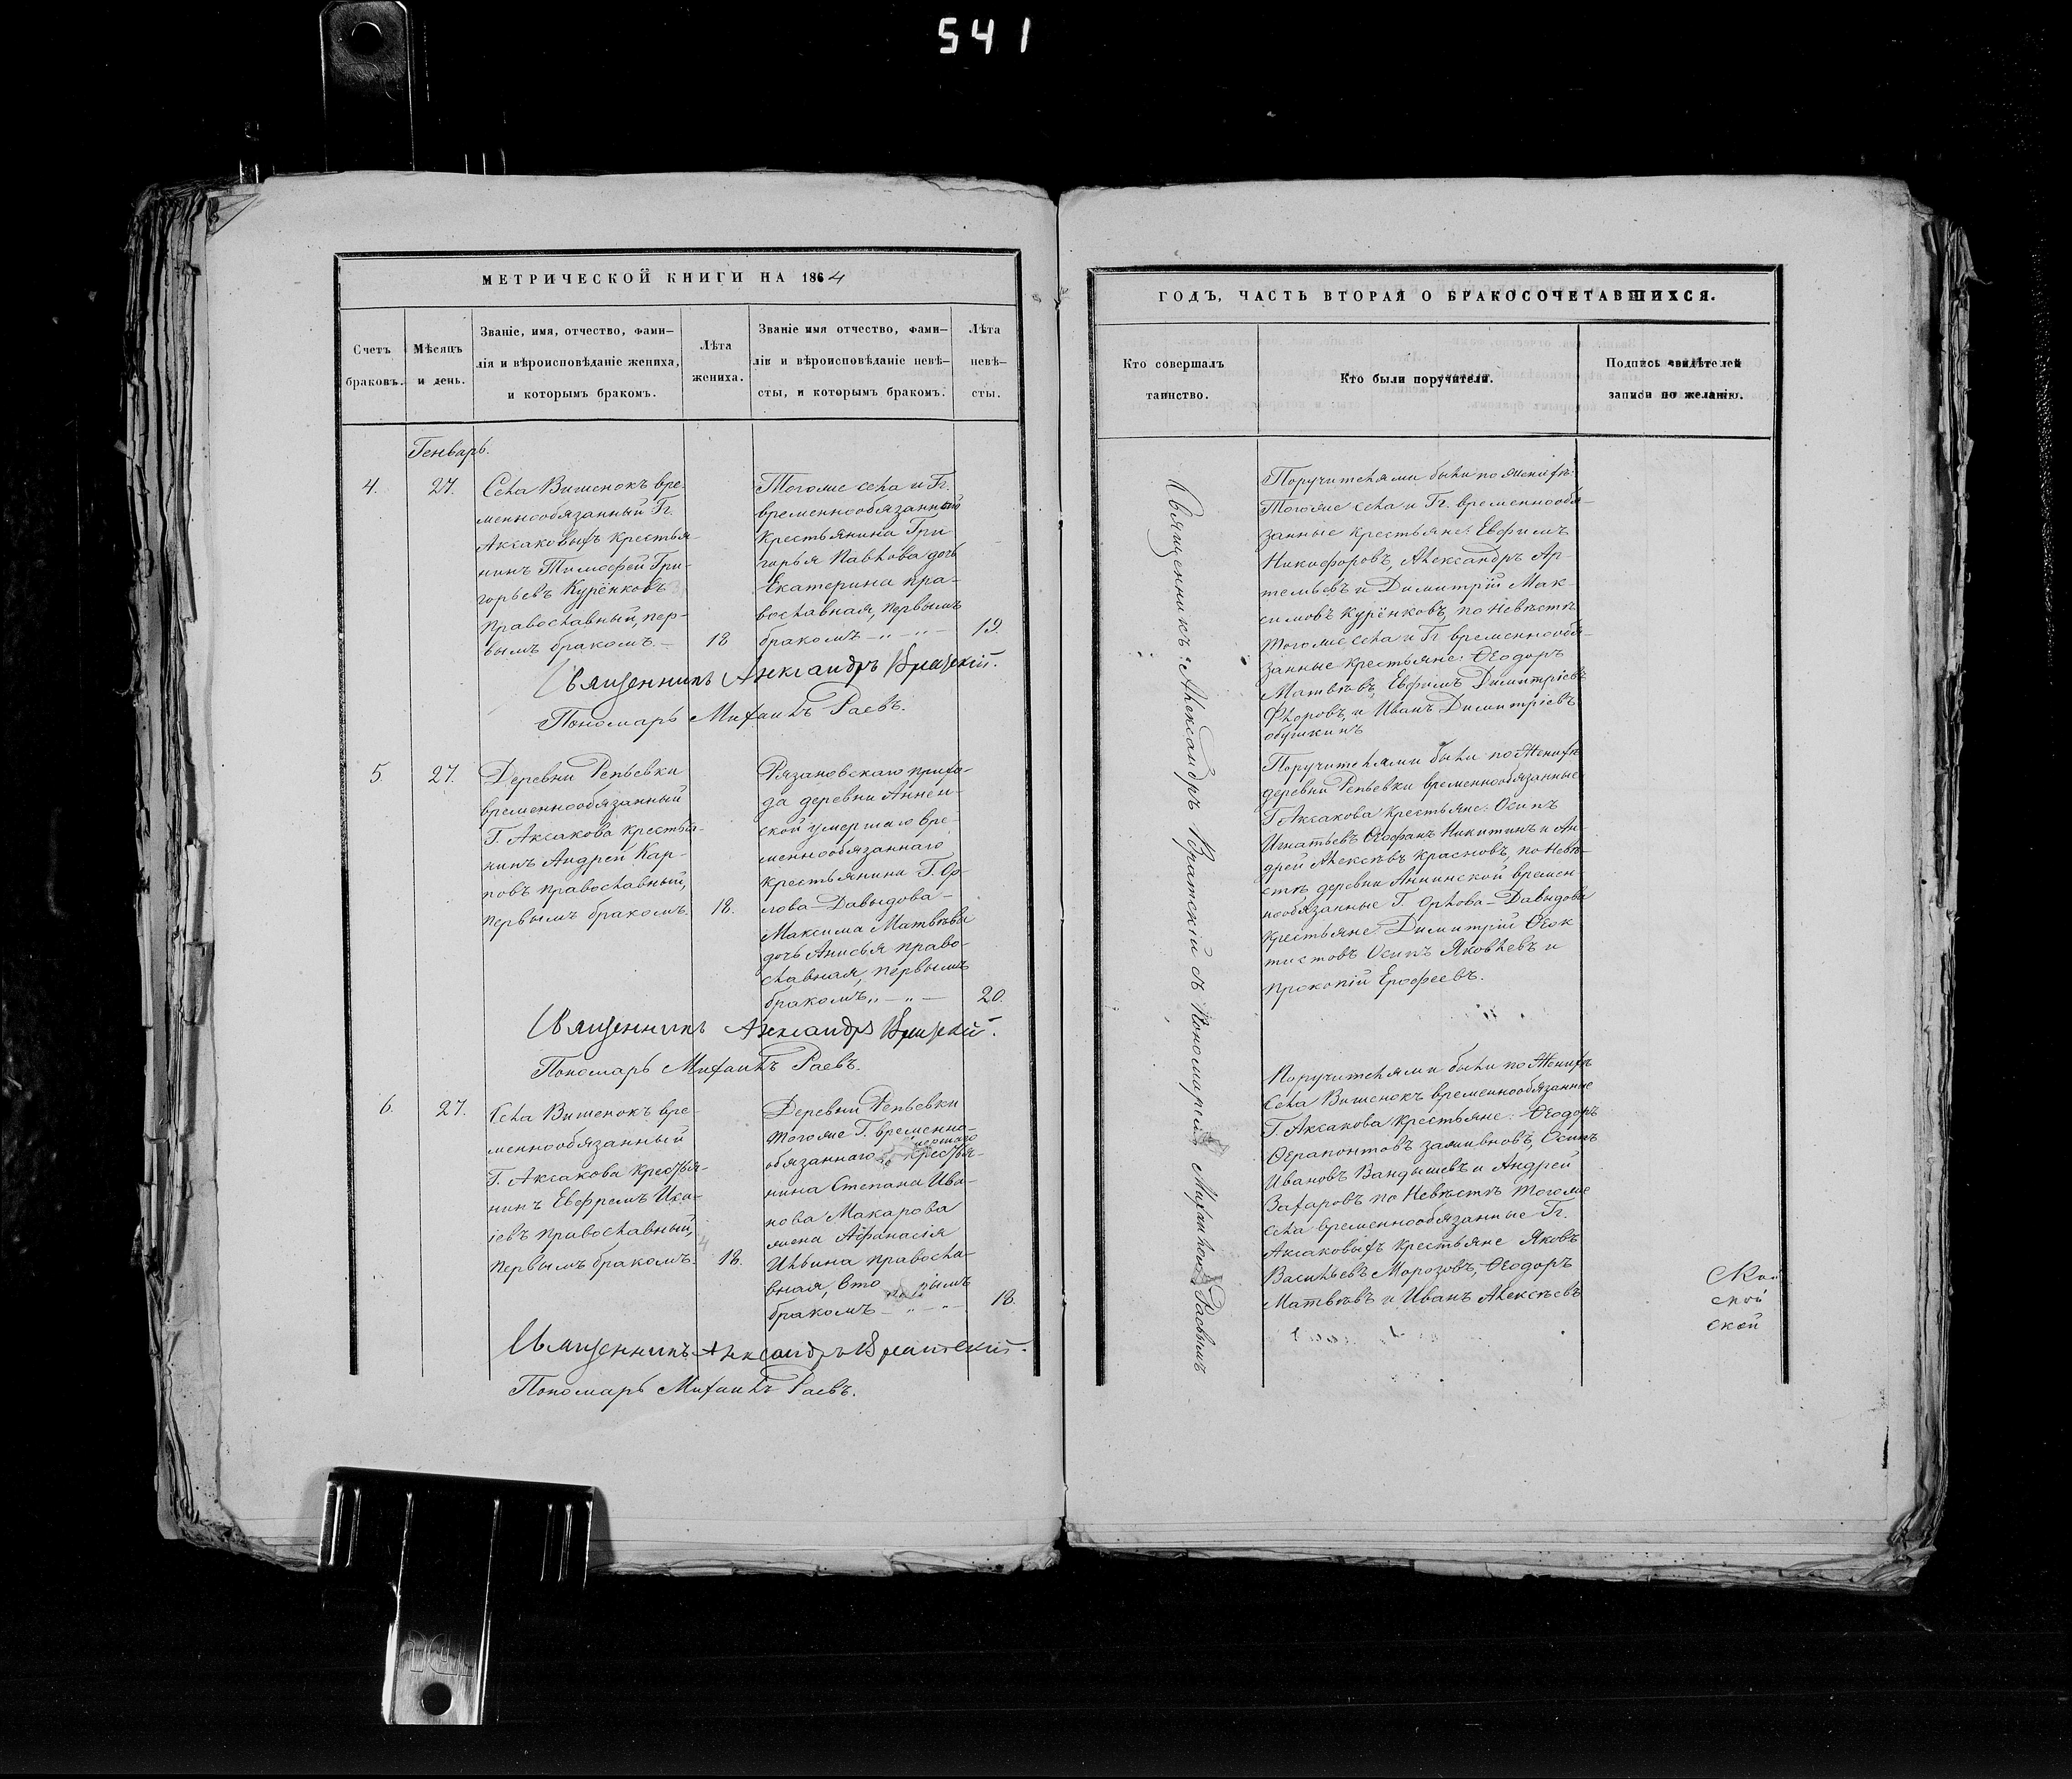 541
МЕТРИЧЕСКОЙ КНИГИ НА 1864
Счетъ
браковъ.
Мѣсяцъ
и день.
Званіе, имя, отчество, фами-
лія и вѣроисповѣданіе жениха,
и которымъ бракомъ.
Лѣта
жениха.
Званіе имя отчество, фами-
лія и вѣроисповѣданіе невѣ-
сты, и которымъ бракомъ.
Лѣта
невѣ-
сты.
Генварь.
4.
27.
Села Вишенокъ вре-
меннообязанный Гг.
Аксаковыхъ крестья-
нинъ Тимофей Гри-
горьевъ Курёнковъ
православный, пер-
вымъ бракомъ.
18
Тогоже села и Гг.
временнообязанный
крестьянина Гри
горья Павлова дочь
Екатерина пра-
вославная, первымъ
бракомъ - „ - „ -
19.
Священникъ Александръ Вратскій.
Пономарь Михаилъ Раевъ.
5
27.
Деревни Репьевки
временнообязанный
Г. Аксакова крестья-
нинъ Андрей Кар-
повъ православный,
первымъ бракомъ.
18.
Рязановскаго прихо-
да деревни Аннен-
ской умершаго вре-
меннообязаннаго
крестьянина Г. Ор-
лова-Давыдова-
Максима Матвѣева
дочь Анисья право-
славная, первымъ
бракомъ „ - „ -
20.
Священникъ Александръ Вратскій.
Пономарь Михаилъ Раевъ.
6.
27.
Села Вишенокъ вре-
меннообязанный
Г. Аксакова крестья-
нинъ Евфремъ Иса-
іевъ православный,
первымъ бракомъ.
18.
Деревни Репьевки
тогоже Г. временно-
обязаннаго крестья-
нина Степана Ива-
нова Макарова
жена Афанасія
Ильина правосла-
вная, вто рымъ
бракомъ - „ - „ -
18.
Священникъ Александръ Вратскій.
Пономарь Михаилъ Раевъ.
ГОДЪ, ЧАСТЬ ВТОРАЯ О БРАКОСОЧЕТАВШИХСЯ.
Кто совершалъ
таинство.
Кто были поручители.
Подпись свидѣтелей
записи по желанію.
Священникъ: Александръ Вратскій съ Пономаремъ Михаиломъ Раевымъ
Поручителями были по жениху:
Тогоже села и Гг. временнообя-
занные крестьяне: Евфимъ
Никифоровъ, Александръ Ар-
темьевъ и Димитрій Мак-
симовъ Курёнковъ, по невѣстѣ
тогоже села и Гг. временнообя-
занные крестьяне: Ѳеодоръ
Матвѣевъ Евфимъ Димитріевъ
Флоровъ, и Иванъ Димитріевъ
обушкинъ
Поручителями были по Женихѣ
деревни Репьевки временнообязанные
Г Аксакова крестьяне: Осипъ
Игнатьевъ Ѳеофанъ Никитинъ и Ан-
дрей Алексѣевъ Красновъ, по невѣ-
стѣ деревни Аннинской времен-
нообязанные Г. Орлова-Давыдова
крестьяне: Димитрій Ѳеок
тистовъ Осипъ Яковлевъ и
Прокопій Ерофеевъ.
Поручителями были по Женихѣ
Села Вишенокъ временнообязанные
Г. Аксакова крестьяне: Ѳеодоръ
Ѳерапонтовъ заливновъ, Осипъ
Ивановъ Вандышевъ и Андрей
Захаровъ по Невѣстѣ тогоже
села временнообязанные Гг.
Аксаковыхъ крестьяне Яковъ
Васильевъ Морозовъ, Ѳеодоръ
Матвѣевъ и Иванъ Алексѣевъ
ской
ской